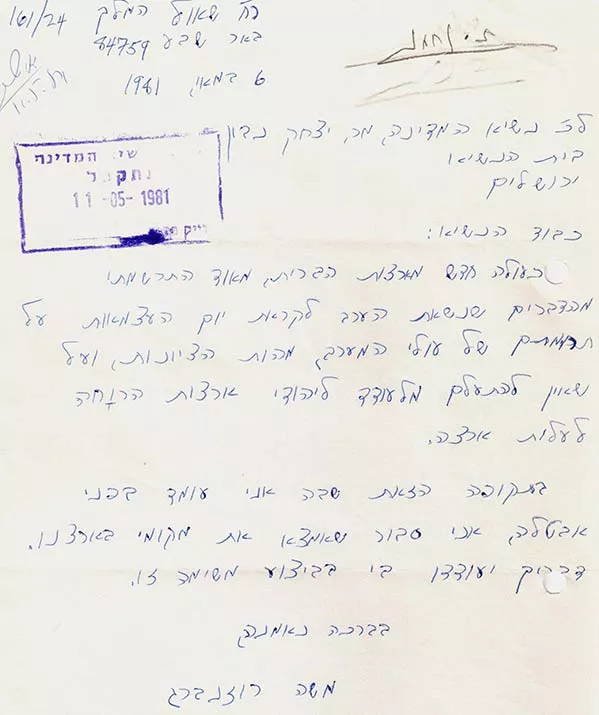 רח' שאול המלך 161/24
באר שבע 84759
6 במאי 1981
11.5.81
שי המדינה
נתקבל
11-05-1981
תיק
לכ' נשיא המדינה מר יצחק נבון
בית הנשיא
ירושלים
כבוד הנשיא:
כעולה חדש מארצות הברית, מאוד התרשמתי
מהדברים שנשאת הערב לקראת יום העצמאות על
תרומתם של עולי המערב, מהות הציונות, ועל
שאין להתעלם מלעודד ליהודי ארצות הרוָחה
לעלות ארצה.
בתקופה הזאת שבה אני עומד בפני
אבטלה, אני סבור שאמצא את מקומי בארצנו.
דבריך יעודדו בי בביצוע משימה זו.
בברכה נאמנה,
משה רוזנברג